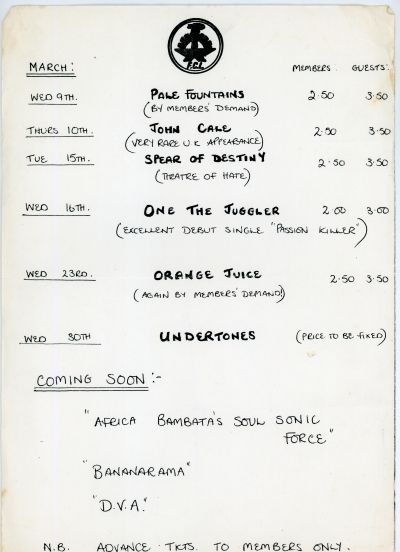 F.C.L.
MARCH: MEMBERS GUESTS:
WED 9TH. PALE FOUNTAINS 2.50 3.50
(BY MEMBERS' DEMAND)
THURS 10TH. JOHN CALE 2.50 3.50
(VERY RARE U.K. APPEARANCE)
TUE 15TH. SPEAR OF DESTINY 2.50 3.50
(THEATRE OF HATE)
WED 16TH. ONE THE JUGGLER 2.00 3.00
(EXCELLENT DEBUT SINGLE "PASSION KILLER")
WED 23RD. ORANGE JUICE 2.50 3.50
(AGAIN BY MEMBERS' DEMAND!)
WED 30TH UNDERTONES (PRICE TO BE FIXED)
COMING SOON:-
"AFRICA BAMBATA'S SOUL SONIC
FORCE"
"BANANARAMA"
"D.V.A."
N.B. ADVANCE TKTS. TO MEMBERS ONLY.